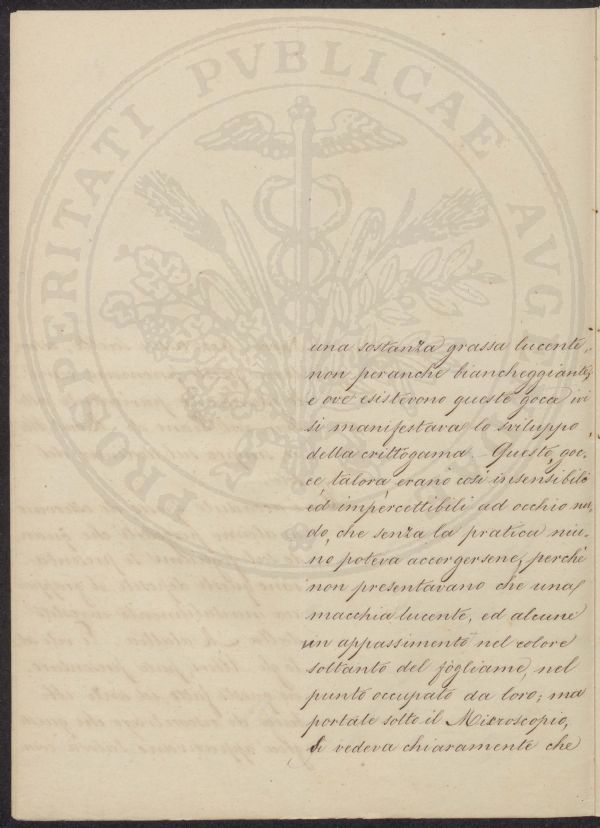 PROSPERITATI PVBLICAE AVG
una sostanza grassa lucente,
non peranche biancheggiante,
e ove esistevono queste gocce ivi
si manifestava lo sviluppo
della crittogama. Queste goc-
ce talora erano così insensibili
ed impercettibili ad occhio nu-
do, che senza la pratica niu-
no poteva accorgersene, perchè
non presentavano che una
macchia lucente, ed alcune
un appassimento nel colore
soltanto del fogliame, nel
punto occupato da loro; ma
portate sotto il Mixroscopio,
si vedeva chiaramente che